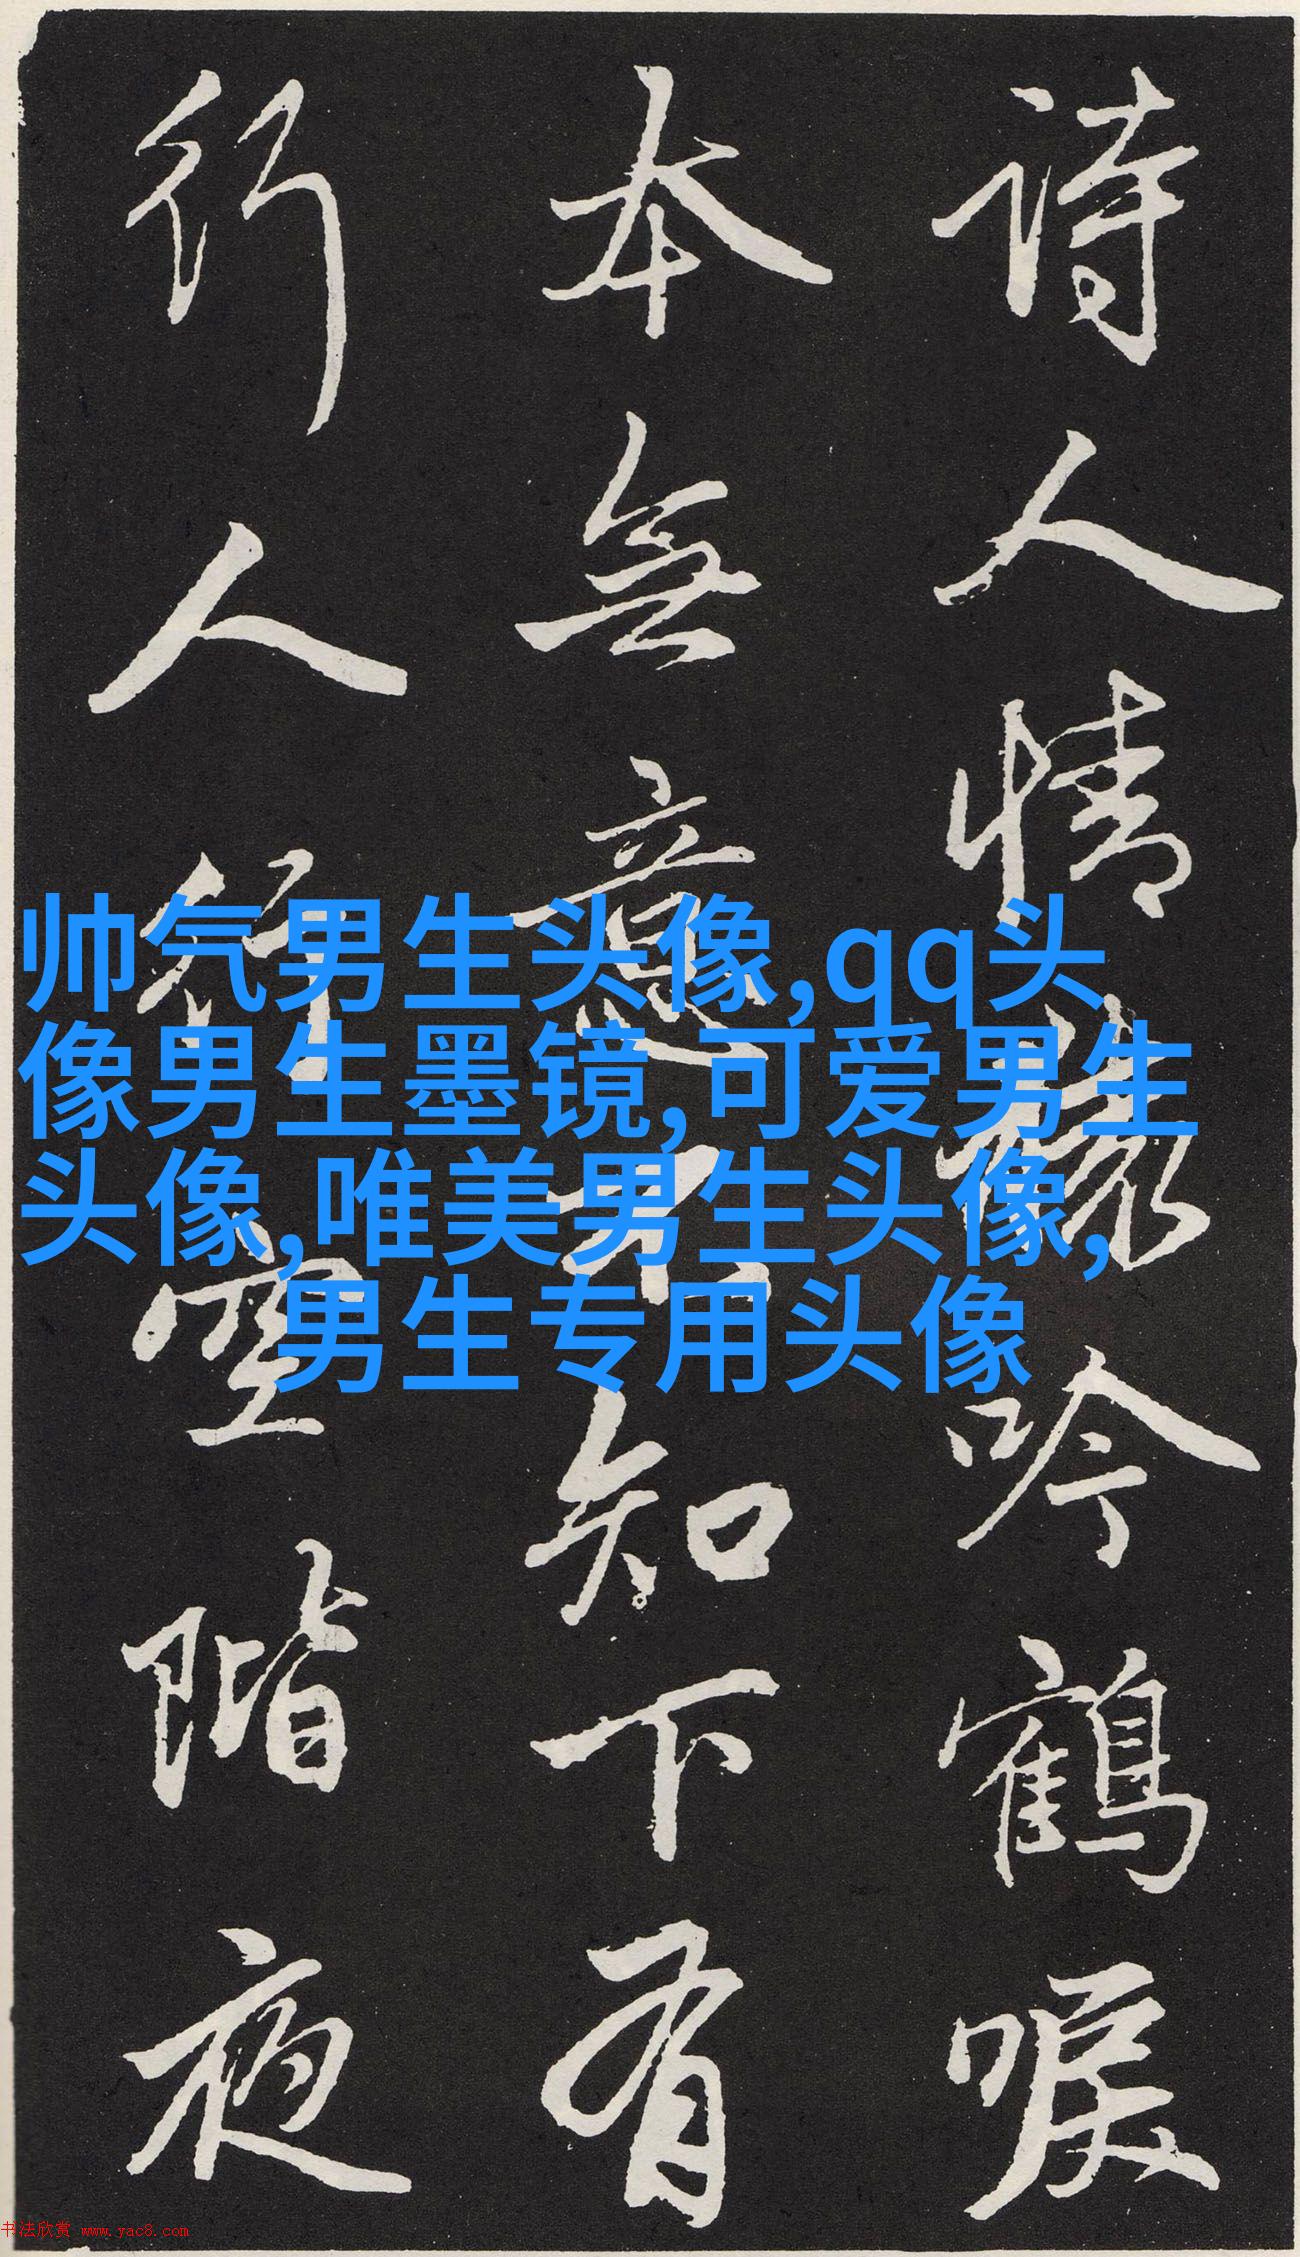 詩人情猿吟鶴唳
本無意不知下有
行人行空階夜
帅气男生头像,qq头
像男生墨镜,可爱男生
头像,唯美男生头像,
男生专用头像
书法欣赏 www.yac8.com